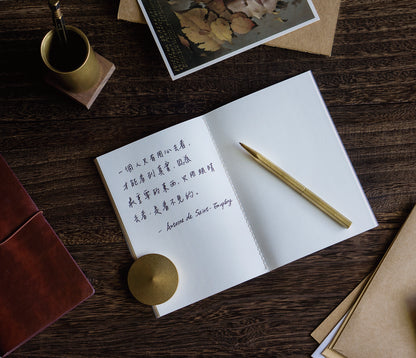 一個人只有用心去看，
才能看到真實。因為
最重要的東西，只用眼睛
去看，是看不見的。
- Antoine de Saint-Exupéry